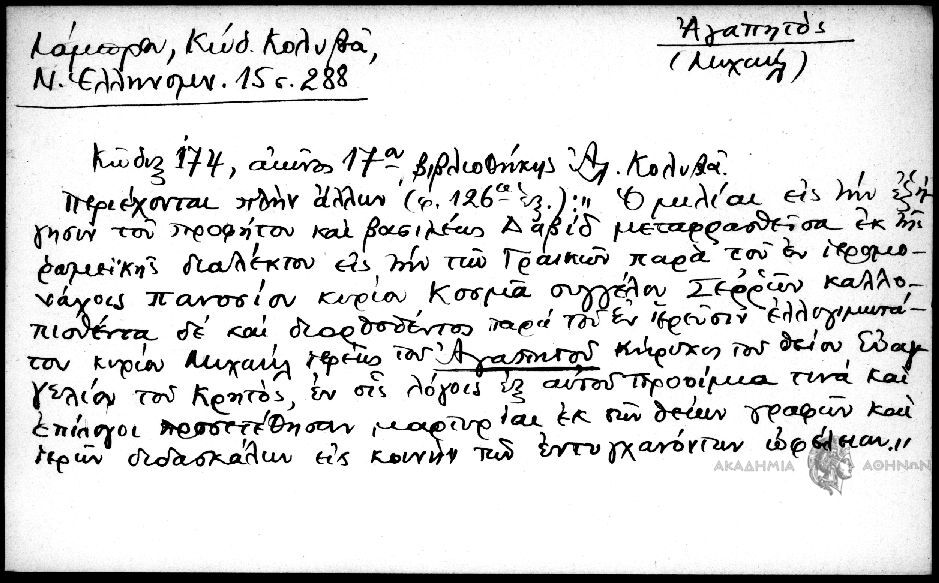 Λάμπρου, Κώδ. Κολυβᾶ,
Ν. Ἑλληνομν. 15 σ. 288
Ἀγαπητὸς
(Μιχαήλ)
Κῶδιξ 174, αἰῶνος 17ου βιβλιοθήκης Ἀλ. Κολυβᾶ.
Περιέχονται πλὴν ἄλλων (φ. 126α ἑξ.): " Ὁμιλίαι εἰς τὴν ἐξή-
γησιν τοῦ προφήτου καὶ βασιλέως Δαβὶδ μεταφρασθεῖσα ἐκ τῆς
ῥωμαϊκῆς διαλέκτου εἰς τὴν τῶν Γραικῶν παρὰ τοῦ ἐν ἱερομο-
νάχοις πανοσίου κυρίου Κοσμᾶ συγγέλου Σερρῶν καλλο-
πισθέντα δὲ καὶ διορθοθέντος παρὰ τοῦ ἐν ἱερεῦσιν ἐλλογιμωτά-
του κυρίου Μιχαήλ ἱερέως τοῦ Ἀγαπητοῦ κήρυκος τοῦ θείου Εὐαγ
γελίου τοῦ Κρητὸς, ἐν οἷς λόγοις ἐξ αὐτοῦ προοίμια τινά καὶ
ἐπίλογοι προσετέθησαν μαρτυρίαι ἐκ τῶν θείων γραφῶν καὶ
ἱερῶν διδασκάλων εἰς κοινὴν τῶν ἐντυγχανόντων ὠφέλειαν."
ΑΚΑΔΗΜΙΑ ΑΘΗΝΩΝ